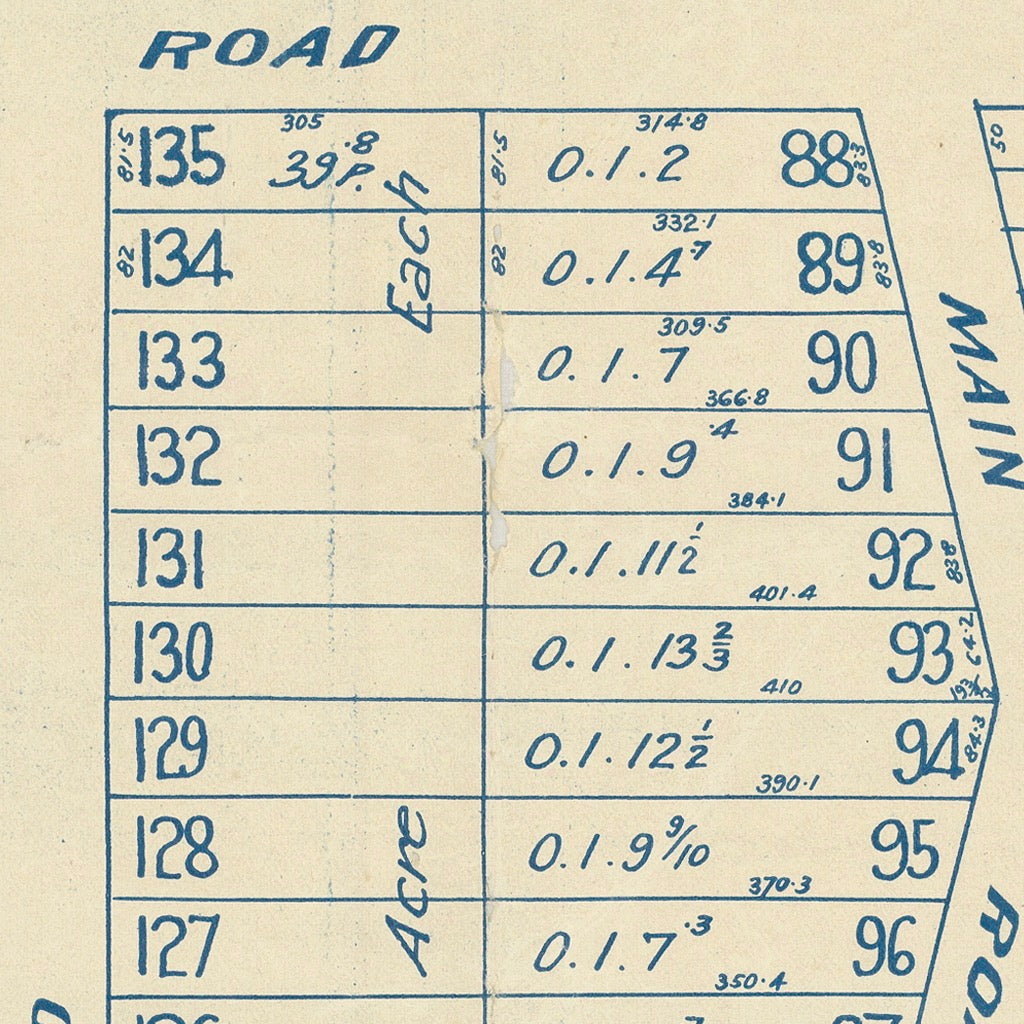 ROAD
305
314·8
81·5 135 39·8 P. 81·5 0.1.2 88 83·3 50
332·1
82 134 Each 82 0.1.4·7 89 83·8
309·5
133 0.1.7 90 MAIN
366·8
132 0.1.9·4 91
384·1
131 0.1.11½ 92 838
401·4
130 0.1.13⅔ 93 64·2
410
129 0.1.12½ 94 84·3
390·1
128 Acre 0.1.9 9/10 95
370·3
127 0.1.7·3 96
350·4